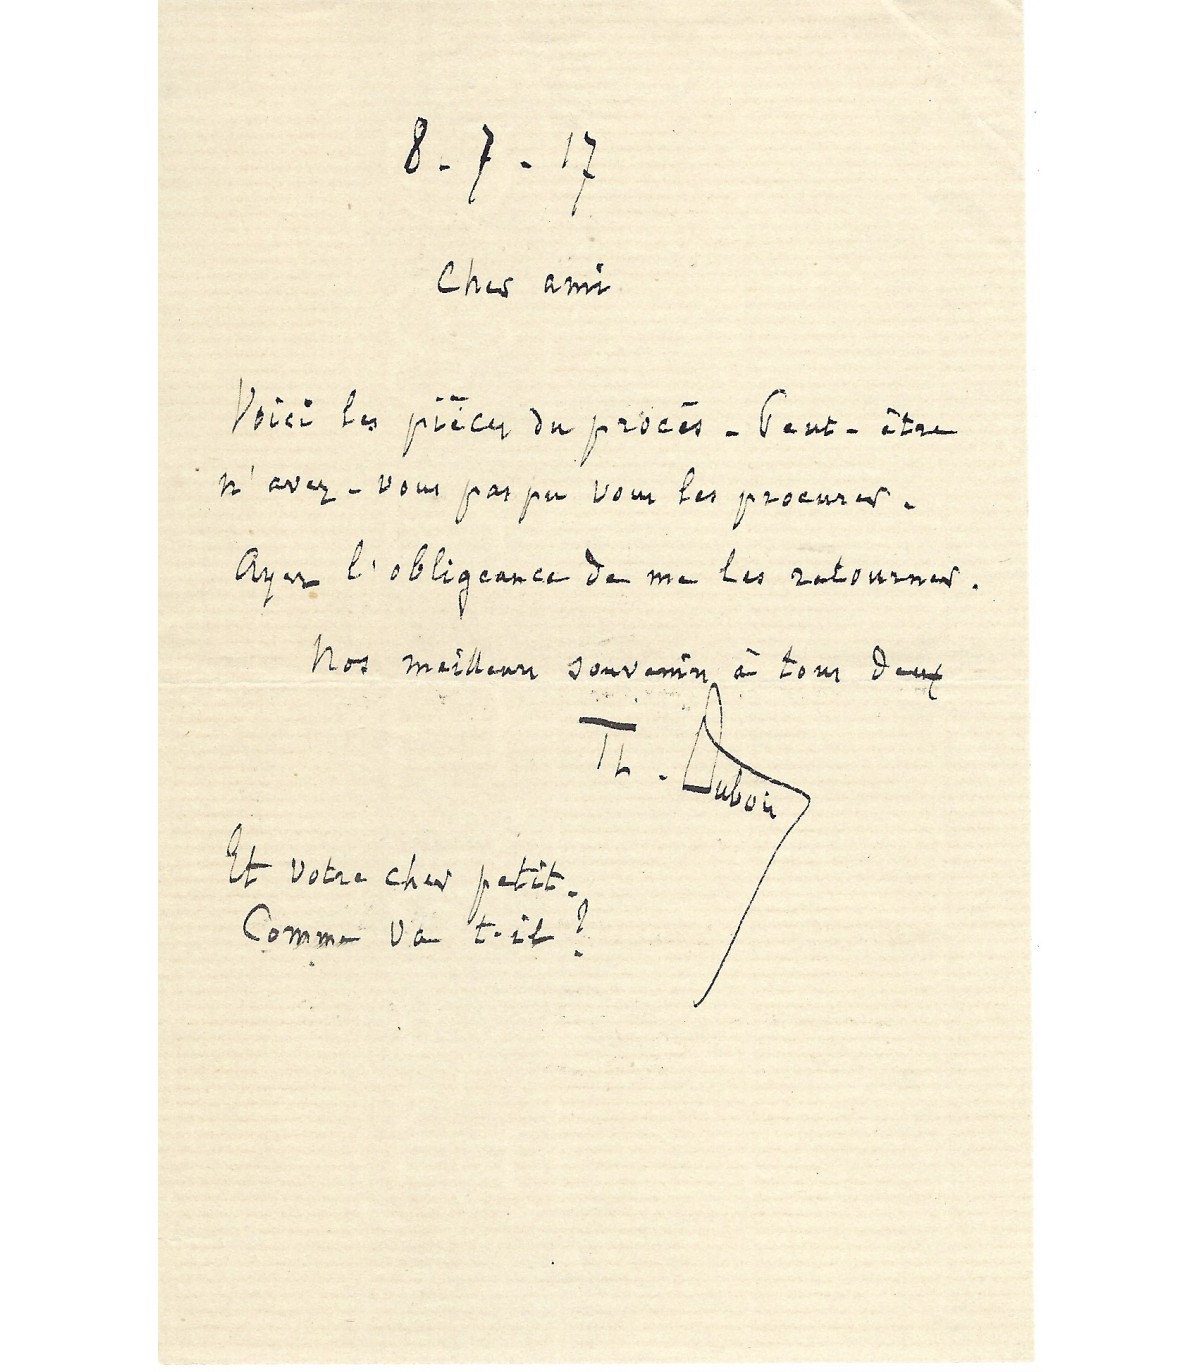 8 - 7 - 17
Cher ami
Voici les pièces du procès - Peut-être
n'avez-vous pas pu vous les procurer.
Ayez l'obligeance de me les retourner.
Nos meilleurs souvenirs à tous deux
Th. Dubois
Et votre cher petit.
Comme va t-il ?